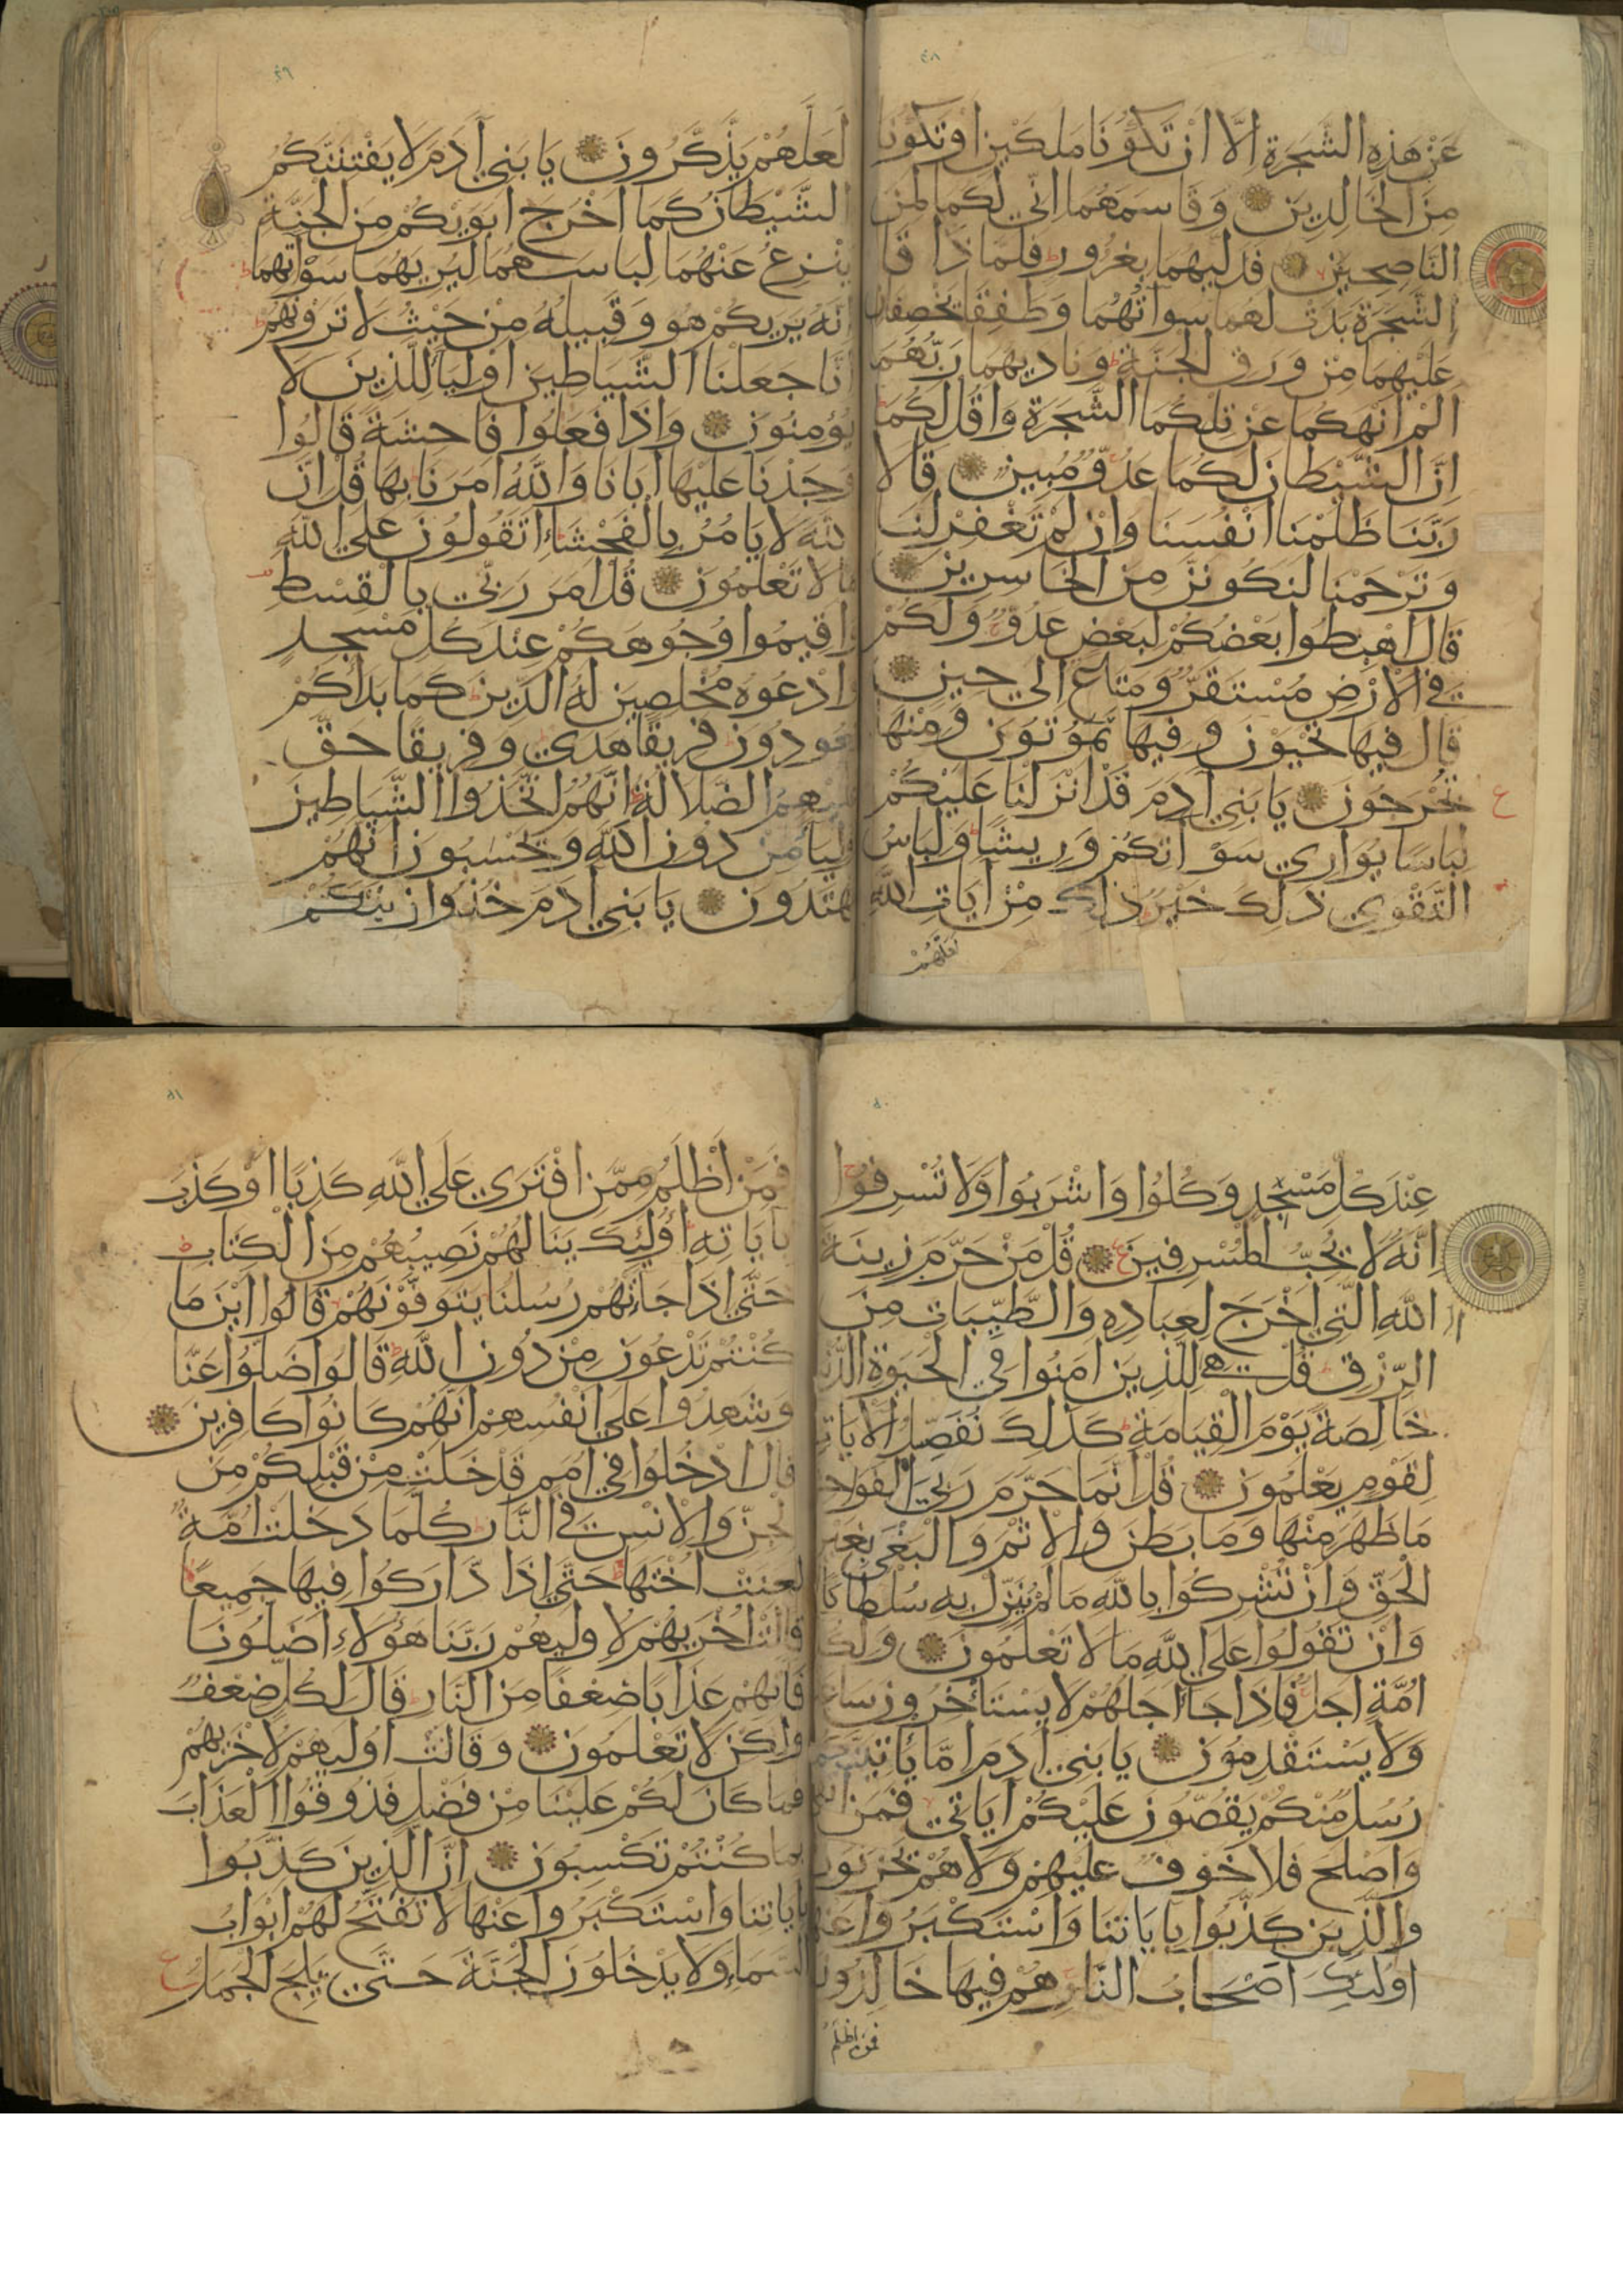 ٤٨
عَنْ هَذِهِ الشَّجَرَةِ اِلَّا اَنْ تَكُونَا مَلَكَيْنِ اَوْ تَكُونَا
مِنَ الْخَالِدِينَ وَقَاسَمَهُمَا اِنِّي لَكُمَا لَمِنَ
النَّاصِحِينَ فَدَلّيهُمَا بِغُرُورٍ فَلَمَّا ذَاقَا
الشَّجَرَةَ بَدَتْ لَهُمَا سَوْاتُهُمَا وَطَفِقَا يَخْصِفَانِ
عَلَيْهِمَا مِنْ وَرَقِ الْجَنَّةِ وَنَادَيهُمَا رَبُّهُمَا
اَلَمْ اَنْهَكُمَا عَنْ تِلْكُمَا الشَّجَرَةِ وَاَقُلْ لَكُمَا
اِنَّ الشَّيْطَانَ لَكُمَا عَدُوٌّ مُبِينٌ قَالَا
رَبَّنَا ظَلَمْنَا اَنْفُسَنَا وَاِنْ لَمْ تَغْفِرْ لَنَا
وَتَرْحَمْنَا لَنَكُونَنَّ مِنَ الْخَاسِرِينَ
قَالَ اهْبِطُوا بَعْضُكُمْ لِبَعْضٍ عَدُوٌّ وَلَكُمْ
فِي الْاَرْضِ مُسْتَقَرٌّ وَمَتَاعٌ اِلَي حِينٍ
قَالَ فِيهَا تَحْيَوْنَ وَفِيهَا تَمُوتُونَ وَمِنْهَا
تُخْرَجُونَ يَا بَنِي آدَمَ قَدْ اَنْزَلْنَا عَلَيْكُمْ
لِبَاسًا يُوَارِي سَوْاتِكُمْ وَرِيشًا وَلِبَاسُ
التَّقْوَي ذَلِكَ خَيْرٌ ذَلِكَ مِنْ آيَاتِ اللَّهِ
لَعَلَّهُمْ
٤٩
لَعَلَّهُمْ يَذَّكَّرُونَ يَا بَنِي آدَمَ لَا يَفْتِنَنَّكُمُ
الشَّيْطَانُ كَمَا اَخْرَجَ اَبَوَيْكُمْ مِنَ الْجَنَّةِ
يَنْزِعُ عَنْهُمَا لِبَاسَهُمَا لِيُرِيَهُمَا سَوْاتِهِمَا
اِنَّهُ يَرَيكُمْ هُوَ وَقَبِيلُهُ مِنْ حَيْثُ لَا تَرَوْنَهُمْ
اِنَّا جَعَلْنَا الشَّيَاطِينَ اَوْلِيَاءَ لِلَّذِينَ لَا
يُؤْمِنُونَ وَاِذَا فَعَلُوا فَاحِشَةً قَالُوا
وَجَدْنَا عَلَيْهَا اٰبَانَا وَاللَّهُ اَمَرَنَا بِهَا قُلْ اِنَّ
اللَّهَ لَا يَامُرُ بِالْفَحْشَاءِ اَتَقُولُونَ عَلَي اللَّهِ
مَا لَا تَعْلَمُونَ قُلْ اَمَرَ رَبِّي بِالْقِسْطِ
وَاَقِيمُوا وُجُوهَكُمْ عِنْدَ كُلِّ مَسْجِدٍ
وَادْعُوهُ مُخْلِصِينَ لَهُ الدِّينَ كَمَا بَدَاَكُمْ
تَعُودُونَ فَرِيقًا هَدَي وَفَرِيقًا حَقَّ
عَلَيْهِمُ الضَّلَالَةُ اِنَّهُمُ اتَّخَذُوا الشَّيَاطِينَ
اَوْلِيَاءَ مِنْ دُونِ اللَّهِ وَيَحْسَبُونَ اَنَّهُمْ
مُهْتَدُونَ يَا بَنِي آدَمَ خُذُوا زِينَتَكُمْ
٥٠
عِنْدَ كُلِّ مَسْجِدٍ وَكُلُوا وَاشْرَبُوا وَلَا تُسْرِفُوا
اِنَّهُ لَا يُحِبُّ الْمُسْرِفِينَ قُلْ مَنْ حَرَّمَ زِينَةَ
اللَّهِ الَّتِي اَخْرَجَ لِعِبَادِهِ وَالطَّيِّبَاتِ مِنَ
الرِّزْقِ قُلْ هِيَ لِلَّذِينَ اٰمَنُوا فِي الْحَيَوةِ الدُّنْيَا
خَالِصَةً يَوْمَ الْقِيَامَةِ كَذَلِكَ نُفَصِّلُ الْاٰيَاتِ
لِقَوْمٍ يَعْلَمُونَ قُلْ اِنَّمَا حَرَّمَ رَبِّيَ الْفَوَاحِشَ
مَا ظَهَرَ مِنْهَا وَمَا بَطَنَ وَالْاِثْمَ وَالْبَغْيَ بِغَيْرِ
الْحَقِّ وَاَنْ تُشْرِكُوا بِاللَّهِ مَا لَمْ يُنَزِّلْ بِهِ سُلْطَانًا
وَاَنْ تَقُولُوا عَلَي اللَّهِ مَا لَا تَعْلَمُونَ وَلِكُلِّ
اُمَّةٍ اَجَلٌ فَاِذَا جَاءَ اَجَلُهُمْ لَا يَسْتَاْخِرُونَ سَاعَةً
وَلَا يَسْتَقْدِمُونَ يَا بَنِي آدَمَ اِمَّا يَاْتِيَنَّكُمْ
رُسُلٌ مِنْكُمْ يَقُصُّونَ عَلَيْكُمْ اٰيَاتِي فَمَنِ اتَّقَي
وَاَصْلَحَ فَلَا خَوْفٌ عَلَيْهِمْ وَلَا هُمْ يَحْزَنُونَ
وَالَّذِينَ كَذَّبُوا بِاٰيَاتِنَا وَاسْتَكْبَرُوا عَنْهَا
اُولَئِكَ اَصْحَابُ النَّارِ هُمْ فِيهَا خَالِدُونَ
فَمَنْ اَظْلَمُ
٥١
فَمَنْ اَظْلَمُ مِمَّنِ افْتَرَي عَلَي اللَّهِ كَذِبًا اَوْ كَذَّبَ
بِاٰيَاتِهِ اُولَئِكَ يَنَالُهُمْ نَصِيبُهُمْ مِنَ الْكِتَابِ
حَتَّي اِذَا جَاءَتْهُمْ رُسُلُنَا يَتَوَفَّوْنَهُمْ قَالُوا اَيْنَ مَا
كُنْتُمْ تَدْعُونَ مِنْ دُونِ اللَّهِ قَالُوا ضَلُّوا عَنَّا
وَشَهِدُوا عَلَي اَنْفُسِهِمْ اَنَّهُمْ كَانُوا كَافِرِينَ
قَالَ ادْخُلُوا فِي اُمَمٍ قَدْ خَلَتْ مِنْ قَبْلِكُمْ مِنَ
الْجِنِّ وَالْاِنْسِ فِي النَّارِ كُلَّمَا دَخَلَتْ اُمَّةٌ
لَعَنَتْ اُخْتَهَا حَتَّي اِذَا ادَّارَكُوا فِيهَا جَمِيعًا
قَالَتْ اُخْرَيهُمْ لِاُولَيهُمْ رَبَّنَا هَؤُلَاءِ اَضَلُّونَا
فَاٰتِهِمْ عَذَابًا ضِعْفًا مِنَ النَّارِ قَالَ لِكُلٍّ ضِعْفٌ
وَلَكِنْ لَا تَعْلَمُونَ وَقَالَتْ اُولَيهُمْ لِاُخْرَيهُمْ
فَمَا كَانَ لَكُمْ عَلَيْنَا مِنْ فَضْلٍ فَذُوقُوا الْعَذَابَ
بِمَا كُنْتُمْ تَكْسِبُونَ اِنَّ الَّذِينَ كَذَّبُوا
بِاٰيَاتِنَا وَاسْتَكْبَرُوا عَنْهَا لَا تُفَتَّحُ لَهُمْ اَبْوَابُ
السَّمَاءِ وَلَا يَدْخُلُونَ الْجَنَّةَ حَتَّي يَلِجَ الْجَمَلُ